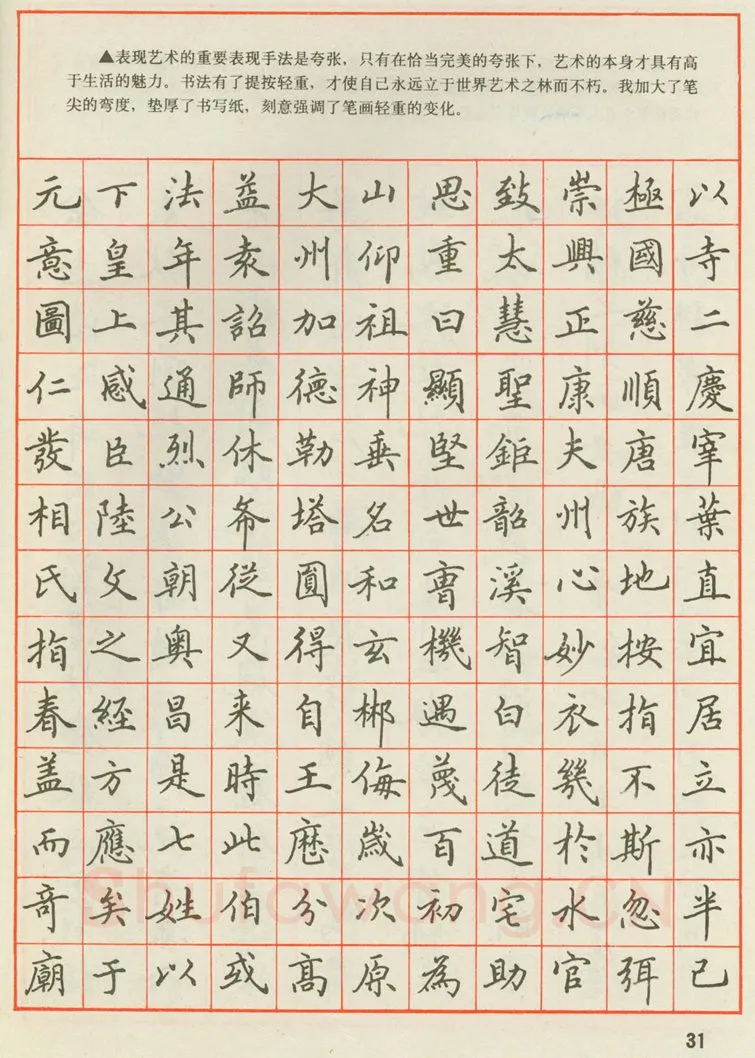 ▲表现艺术的重要表现手法是夸张，只有在恰当完美的夸张下，艺术的本身才具有高
于生活的魅力。书法有了提按轻重，才使自己永远立于世界艺术之林而不朽。我加大了笔
尖的弯度，垫厚了书写纸，刻意强调了笔画轻重的变化。
元下法益大山思致崇極以
意皇年袁州仰重太興國寺
圖上其詔加祖曰慧正慈二
仁感通師德神顯聖康順慶
發臣烈休勒垂堅鉅夫唐宰
相陸公希塔名世韶州族葉
氏父朝從圓和曹溪心地直
指之奥又得玄機智妙按宜
春經昌来自郴遇白衣指居
盖方是時王侮蔑徒幾不立
而應七此歷歲百道於斯亦
奇矣姓伯分次初宅水忽半
廟于以或高原為助官弭已
Shufawang.CN
31